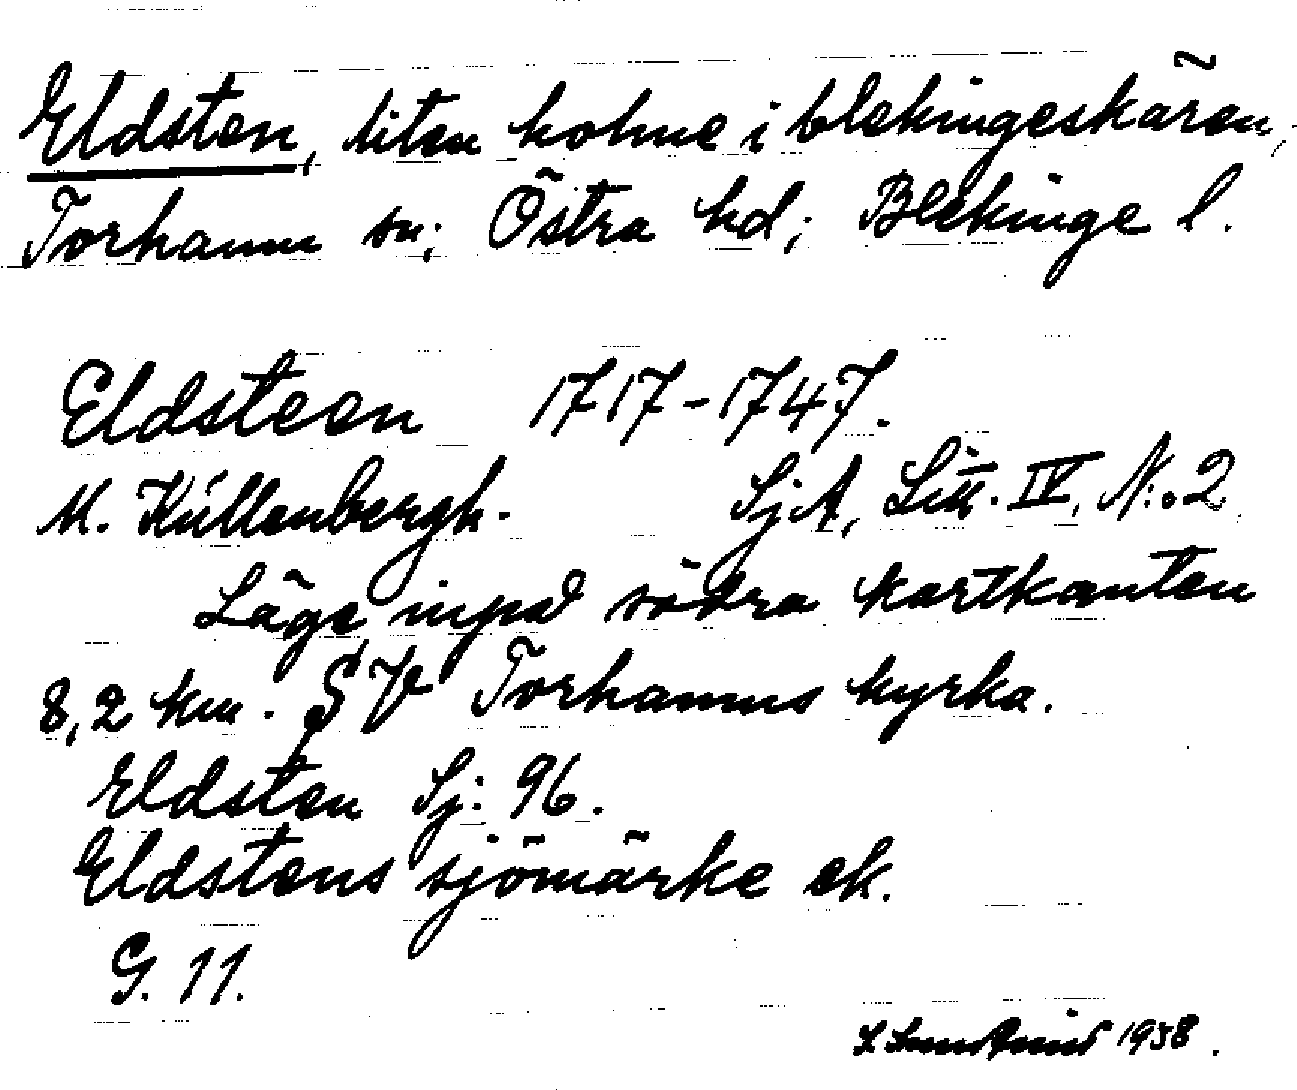 Eldsten, liten holme i blekingeskären,
Torhamn sn; Östra hd; Blekinge l.
Eldsteen 1717-1747.
M. Küllenbergh. SjA, Litt. IV, N:o 2
Läge, invid södra kartkanten
8,2 km. SV Torhamns kyrka.
Eldsten Sj: 96.
Eldstens sjömärke ek.
G. 11.
1938.